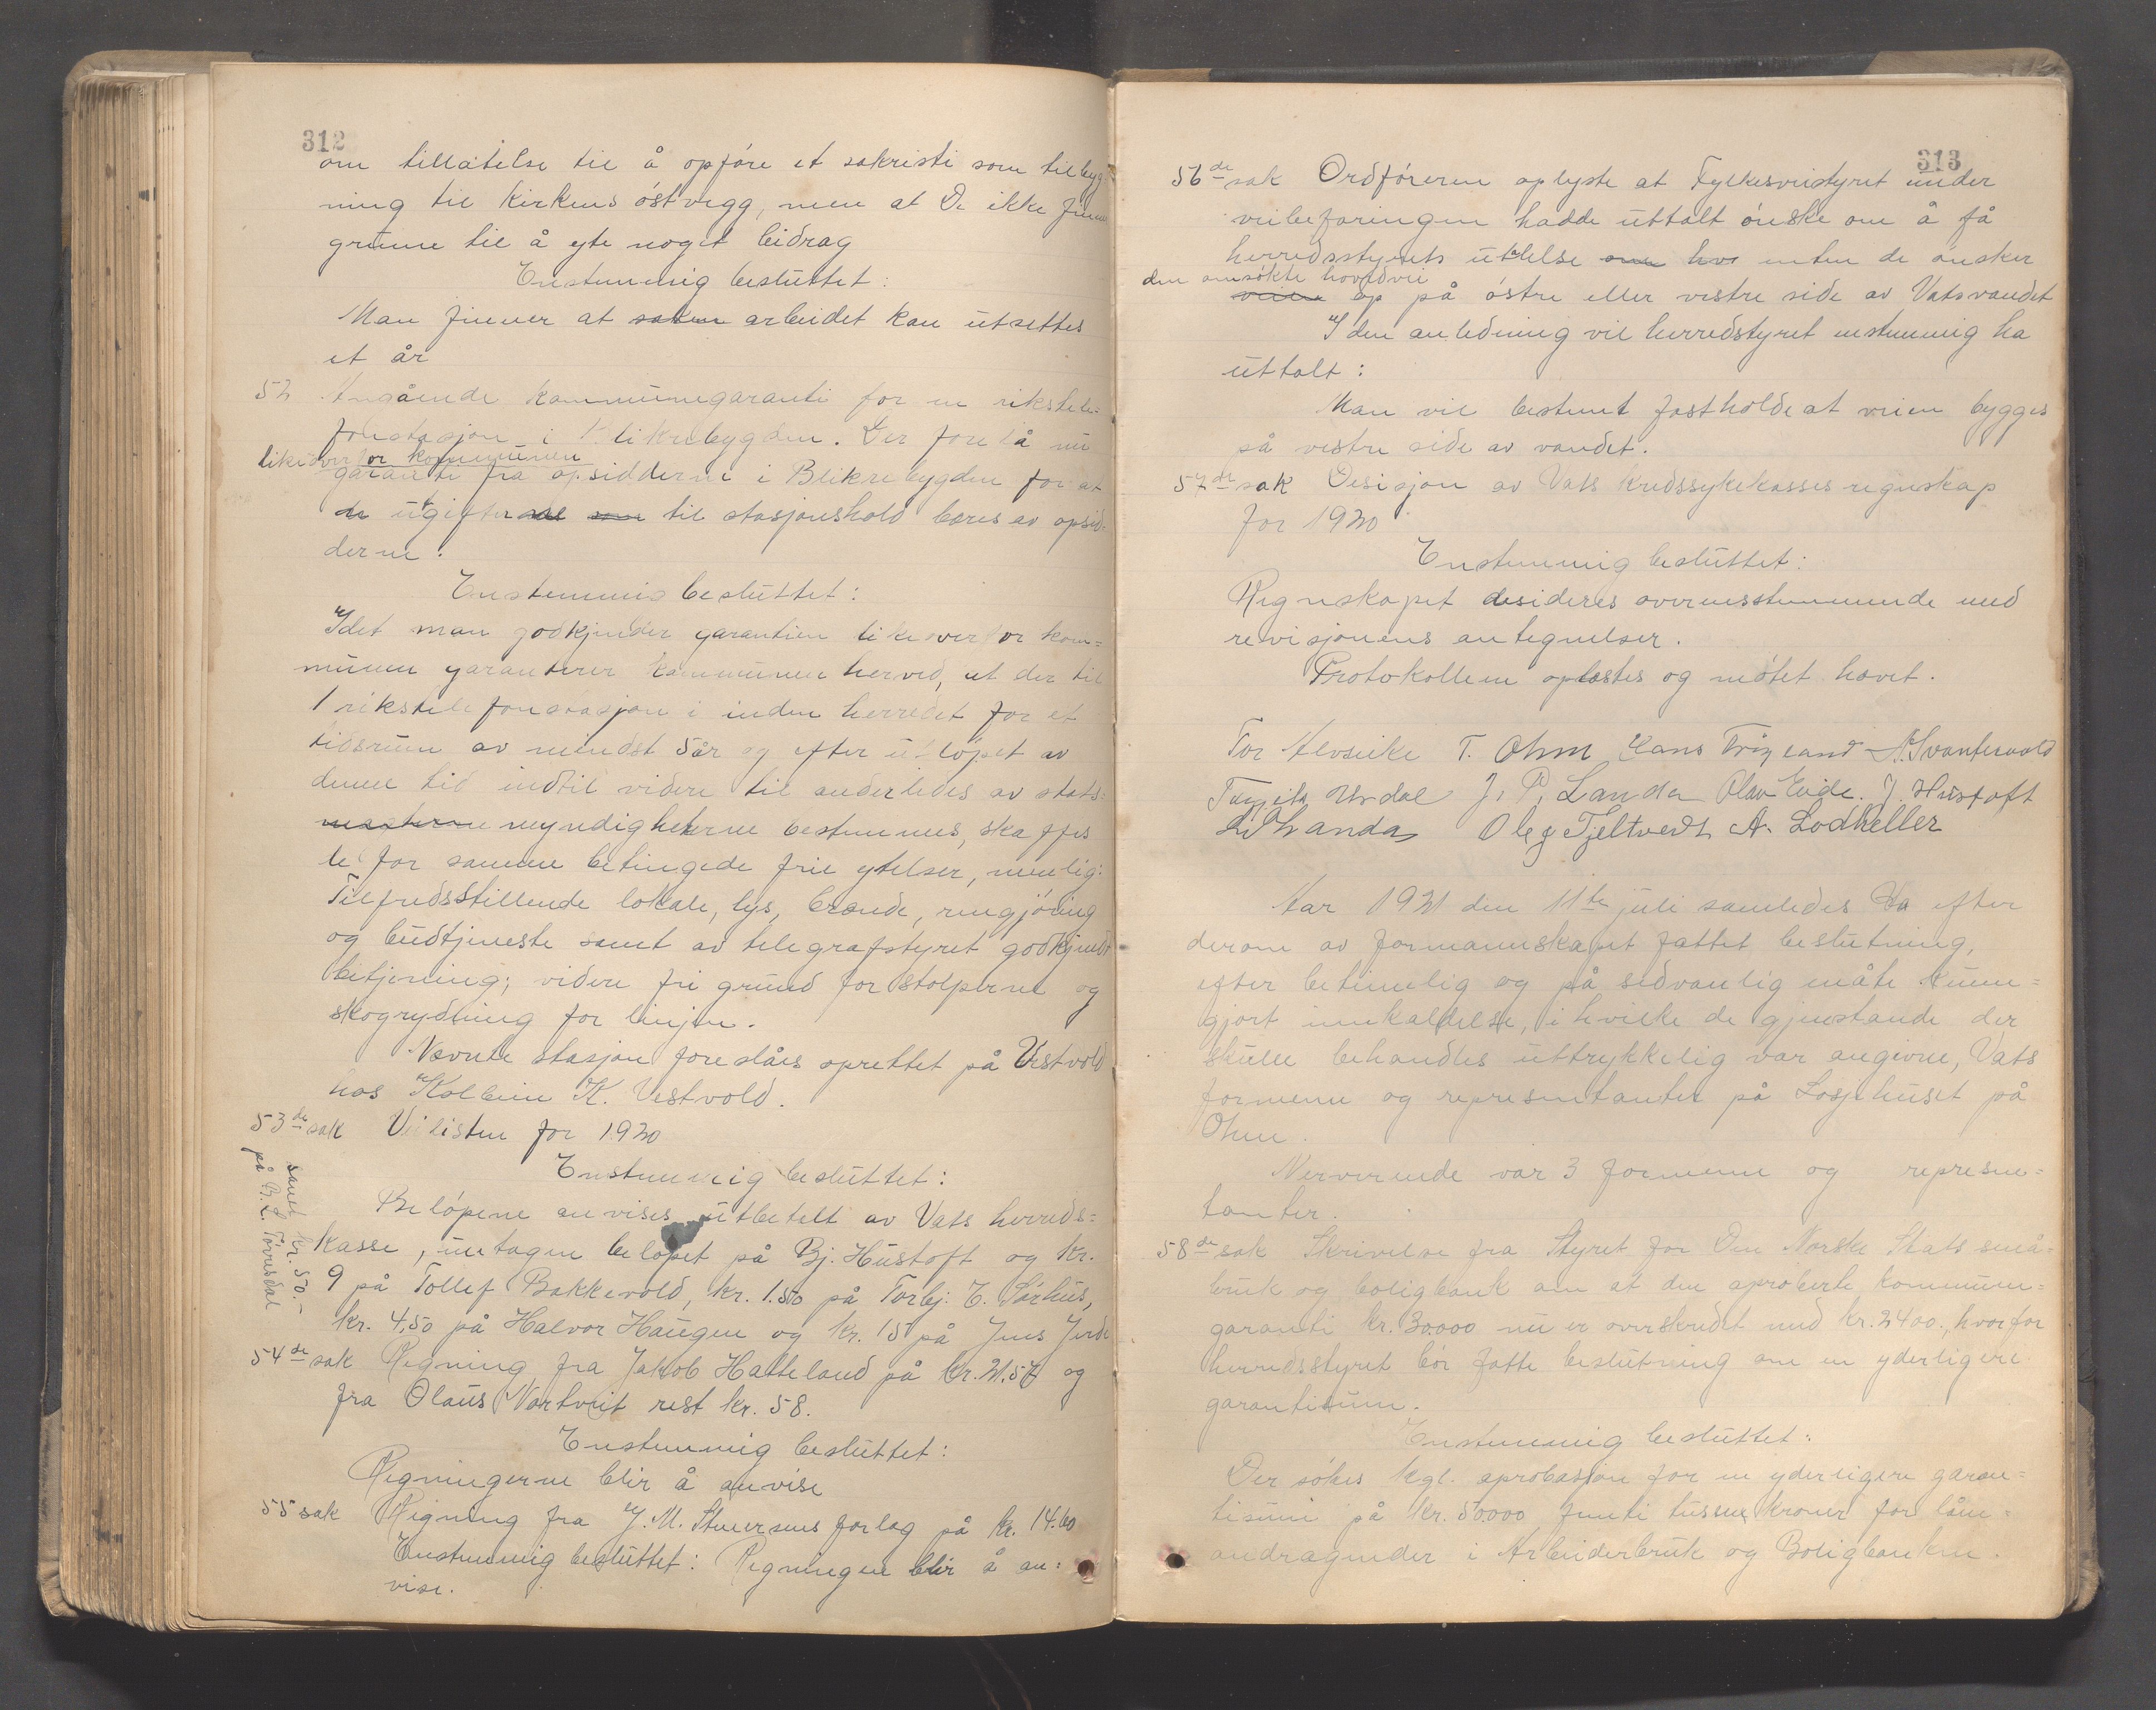 312
om tillatelse til å opføre et sakristi som tilbyg
ning til kirkens østvegg, men at De ikke finner
grunn til å yte noget bidrag
Enstemmig besluttet:
Man finner at saken arbeidet kan utsettes
et år
52 Angående kommunegaranti for en rikstele-
fonstasjon i Blikrebygden. Der forelå nu
likeoverfor kommunen
garanti fra opsidderne i Blikrebygden for at
de utgifter til stasjonshold bæres av opsid-
derne.
Enstemmig besluttet:
Idet man godkjender garantien likeoverfor kom=
munen garanterer kommunen herved, at der til
1 rikstelefonstasjon i inden herredet for et
tidsrum av mindst 5 år og efter utløpet av
denne tid indtil videre til anderledes av stats-
myndigheterne bestemmes, skaffes
de for samme betingede frie ytelser, nemlig:
Tilfredsstillende lokale, lys, brænde, rengjøring
og budtjeneste samt av telegrafstyret godkjendt
betjening; videre fri grund for stolperne og
skogrydning for linjen.
Nævnte stasjon foreslåes oprettet på Vestvold
hos Kolbein K. Vestvold.
53de sak Veilisten for 1920
Enstemmig besluttet:
Beløpene anvises utbetalt av Vats herreds=
kasse, untagen beløpet på Bj. Hustoft og kr.
9 på Tollef Bakkevold, kr. 1.50 på Torbj. T. Sørhus,
kr. 4,50 på Halvor Haugen og kr. 15 på Jens Jerde
samt kr. 50.-
på B. L. Tøvresdal
54de sak Regning fra Jakob Hatteland på kr. 21.57 og
fra Olaus Nortveit rest kr. 58.
Enstemmig besluttet:
Regningerne blir å anvise
55 sak Regning fra J. M. Stenersens forlag på kr. 14.60
Enstemmig besluttet: Regningen blir å an=
vise.
313
56de sak Ordføreren oplyste at Fylkesveistyret under
veibefaringen hadde uttalt ønske om å få
herredsstyrets uttalelse om hvo enten de ønsker
den omsøkte hovedvei
veien op på østre eller vestre side av Vatsvandet
I den anledning vil herredstyret enstemmig ha
uttalt:
Man vil bestemt fastholde at veien bygges
på vestre side av vandet.
57de sak Desisjon av Vats kredssykekasses regnskap
for 1920
Enstemmig besluttet:
Regnskapet desideres overensstemmende med
revisjonens antegnelser.
Protokollen oplæstes og møtet hævet.
Tor Alvseike T. Ohm Hans Frøyland A. Svantesvold
Torgils Urdal J. P. Landa Olav Eide. J. Hustoft
L. Landa Oleg Fjeltvedt A. Lodheller
Aar 1921 den 11te juli samledes efter
derom av formannskapet fattet beslutning,
efter betimelig og på sedvanlig måte kunn=
gjort innkaldelse, i hvilke de gjenstande der
skulle behandles uttrykkelig var angivne, Vats
formenn og representanter på Losjehuset på
Ohm.
Nerverende var 3 formenn og represen=
tanter.
58de sak Skrivelse fra Styret for Den Norske Stats små=
bruk og boligbank om at den aproberte kommune=
garanti kr. 30.000 nu er overskredet med kr. 2400., hvorfor
herredsstyret bør fatte beslutning om en yderligere
garantisum.
Enstemmig besluttet:
Der søkes kgl. aprobasjon for en yderligere garan=
tisum på kr. 50.000 femti tusen kroner for låne=
andragender i Arbeiderbruk og Boligbanken.